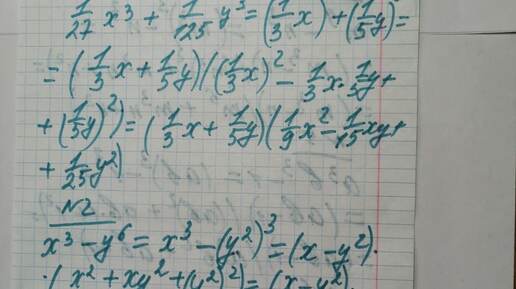 1/27 x³ + 1/125 y³ = (1/3 x) + (1/5 y) =
= (1/3 x + 1/5 y)((1/3 x)² - 1/3 x · 1/5 y +
+ (1/5 y)²) = (1/3 x + 1/5 y)(1/9 x² - 1/15 xy +
+ 1/25 y²)
№2
x³ - y⁶ = x³ - (y²)³ = (x - y²) ·
· (x² + xy² + (y²)²) = (x - y²) ·